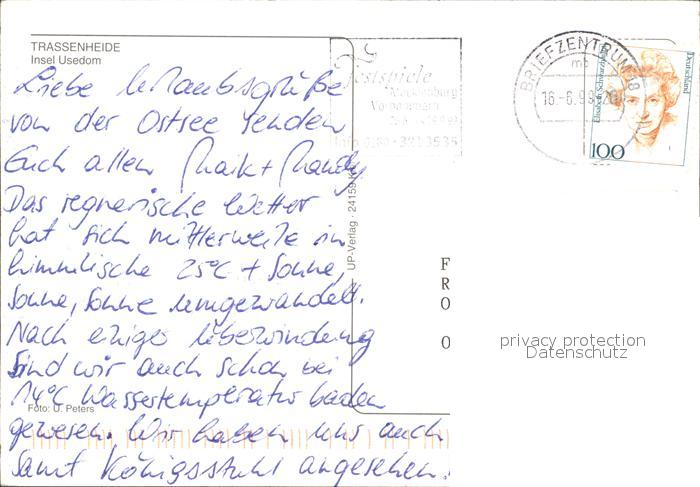 TRASSENHEIDE
Insel Usedom
Liebe Urlaubsgrüße
von der Ostsee senden
Euch allen Maik + Mandy
Das regnerische Wetter
hat sich mittlerweile in
himmlische 25°C + Sonne,
Sonne, Sonne umgewandelt.
Nach einiger Überwindung
sind wir auch schon bei
14°C Wassertemperatur baden
gewesen. Wir haben uns auch
samt Königsstuhl angesehen.
Foto: U. Peters
UP-Verlag · 24159
Festspiele
Mecklenburg
Vorpommern
BRIEFZENTRUM 18
mb
16.-6.98
Deutschland
100
F
R
O
O
privacy protection
Datenschutz